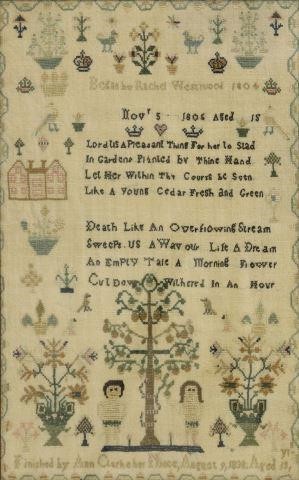 Begun by Rachel Westwood 1804
Novr 5 1806 Aged 15
Lord tis A Pleasant Thing For her to Stad
In Gardens Planted by Thine Hand
Let Her Within Thy Courts be Seen
Like A Young Cedar Fresh and Green
Death Like An Overflowing Stream
Sweeps US AWay our Life A Dream
An Empty Tale A Morning Flower
Cut Down Witherd In An Hour
yr
Finished by Ann Clark her Niece, August 9, 1838, Aged 13,